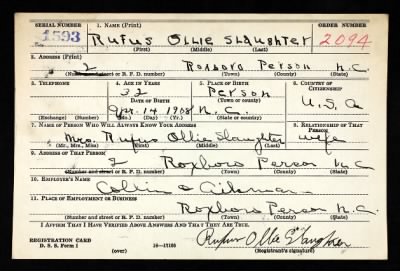 SERIAL NUMBER 1. NAME (Print) ORDER NUMBER
1593 Rufus Ollie Slaughter 2094
(First) (Middle) (Last)
2. ADDRESS (Print)
2 Roxboro Person N.C.
(Number and street or R. F. D. number) (Town) (County) (State)
3. TELEPHONE 4. AGE IN YEARS 5. PLACE OF BIRTH 6. COUNTRY OF CITIZENSHIP
32 Person
DATE OF BIRTH (Town or county) U.S.A
Apr. 14 1908 N.C.
(Exchange) (Number) (Mo.) (Day) (Yr.) (State or country)
7. NAME OF PERSON WHO WILL ALWAYS KNOW YOUR ADDRESS 8. RELATIONSHIP OF THAT PERSON
Mrs. Rufus Ollie Slaughter wife
(Mr., Mrs., Miss) (First) (Middle) (Last)
9. ADDRESS OF THAT PERSON
2 Roxboro Person N.C.
(Number and street or R. F. D. number) (Town) (County) (State)
10. EMPLOYER'S NAME
Collins & Aikman
11. PLACE OF EMPLOYMENT OR BUSINESS
Roxboro Person N.C.
(Number and street or R. F. D. number) (Town) (County) (State)
I AFFIRM THAT I HAVE VERIFIED ABOVE ANSWERS AND THAT THEY ARE TRUE.
REGISTRATION CARD
D. S. S. Form 1 (over) 16—17105 Rufus Ollie Slaughter
(Registrant's signature)